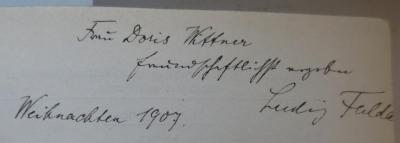 Frau Doris Wittner
freundschaftlichst ergeben
Ludwig Fulda
Weihnachten 1907.